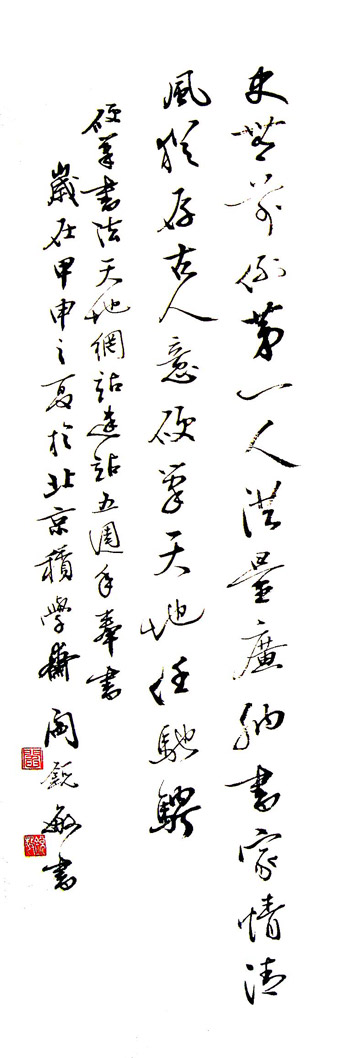 史無前例第一人洪量廣納書家情清
風猶存古人意硬筆天地任馳騁
硬筆書法天地網站建站五週年奉書
歲在甲申之夏於北京積學齋 閻銳敏書